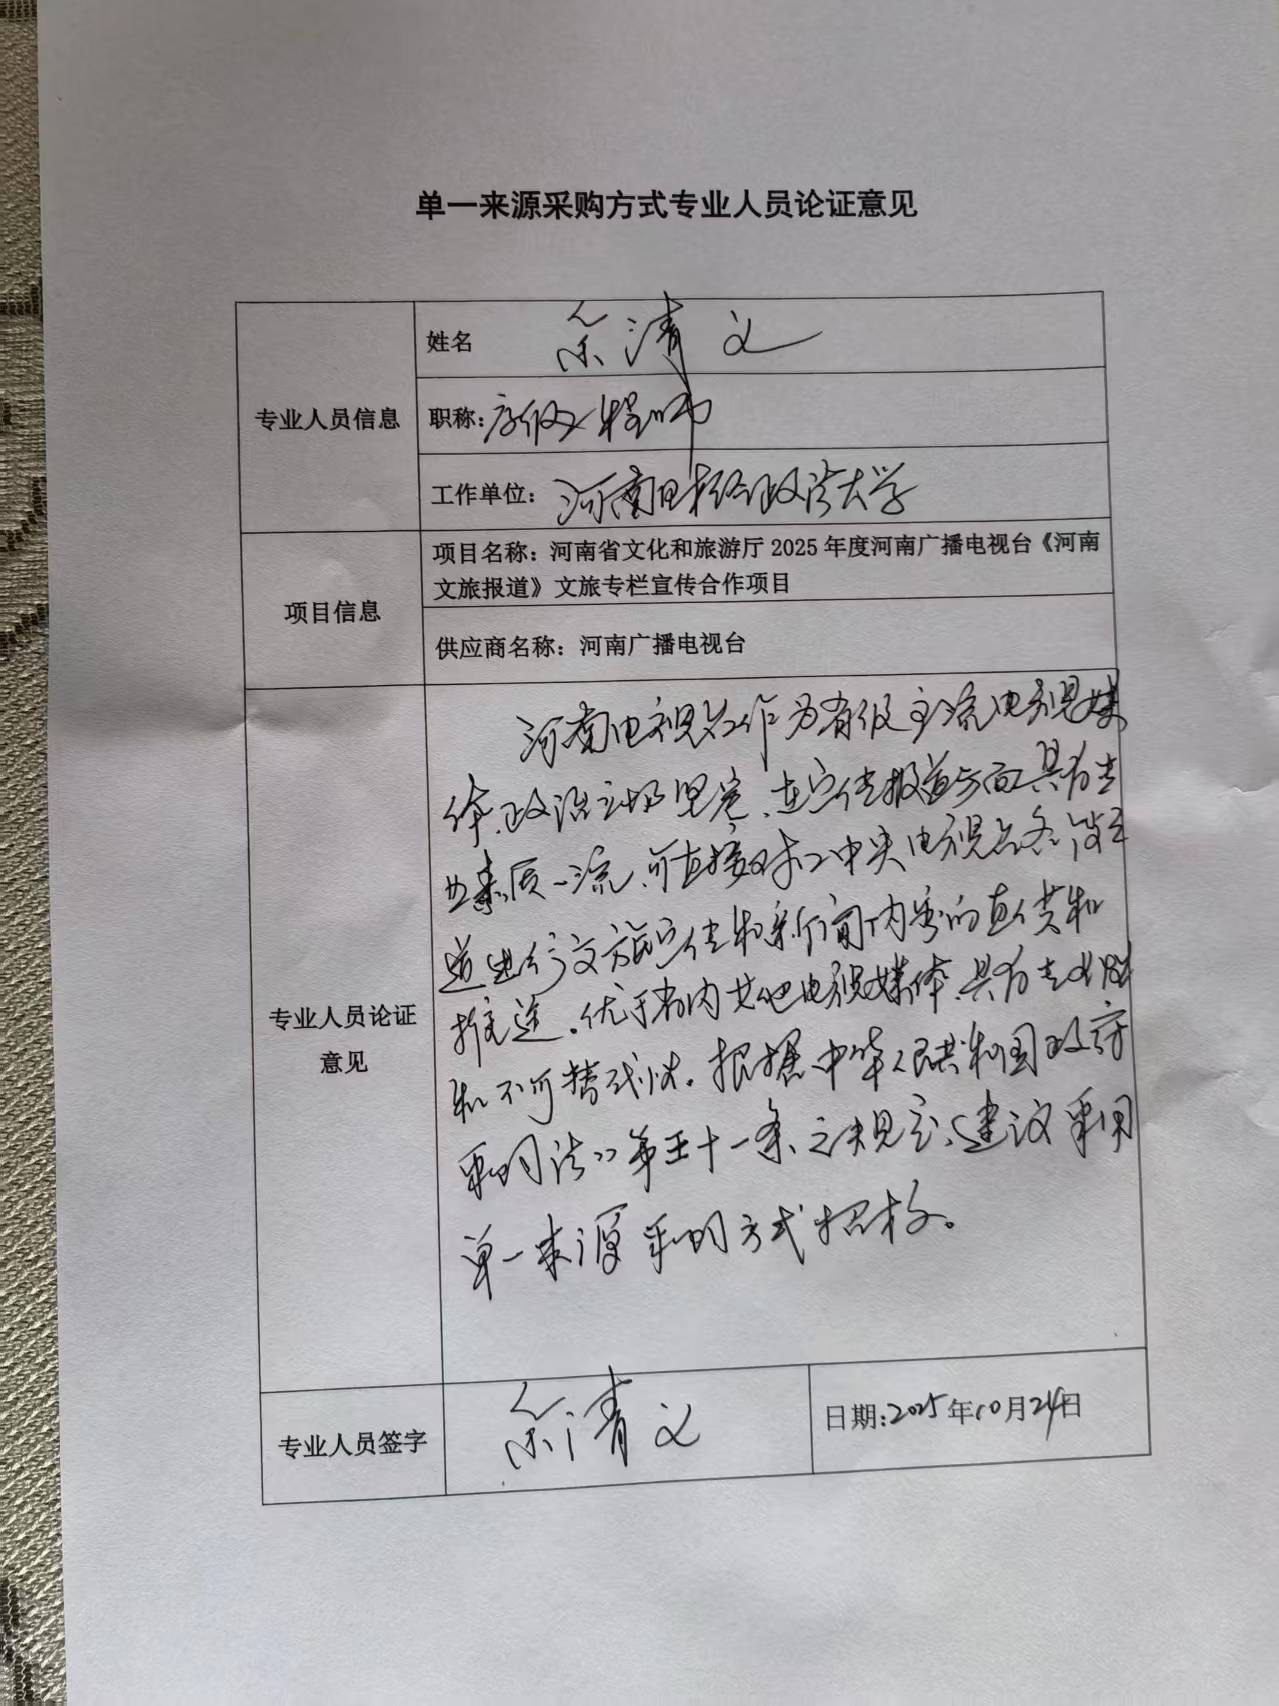 单一来源采购方式专业人员论证意见
专业人员信息
姓名 余清文
职称：高级工程师
工作单位：河南财经政法大学
项目信息
项目名称：河南省文化和旅游厅 2025 年度河南广播电视台《河南
文旅报道》文旅专栏宣传合作项目
供应商名称：河南广播电视台
专业人员论证
意见
河南电视台作为省级主流电视媒
体，政治立场坚定，在宣传报道方面具有专
业素质一流，可直接对接中央电视台各频
道进行文旅宣传和新闻内容的直供和
推送。优于省内其他电视媒体，具有专业性
和不可替代性。根据中华人民共和国政府
采购法》第三十一条之规定，建议采用
单一来源采购方式招标。
专业人员签字
余清文
日期：2025年10月24日